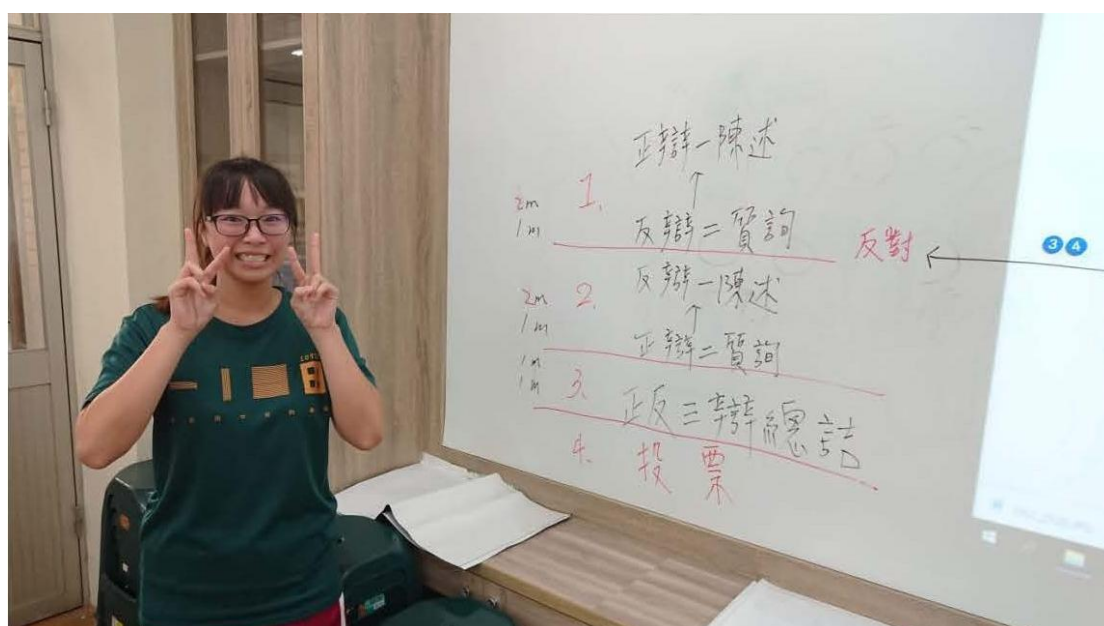 正辯一陳述
2m 1.
↑
1m 反辯二質詢
反對 ← 3 4
2m 2. 反辯一陳述
↑
1m 正辯二質詢
1m
1m 3. 正反三辯總結
4. 投票